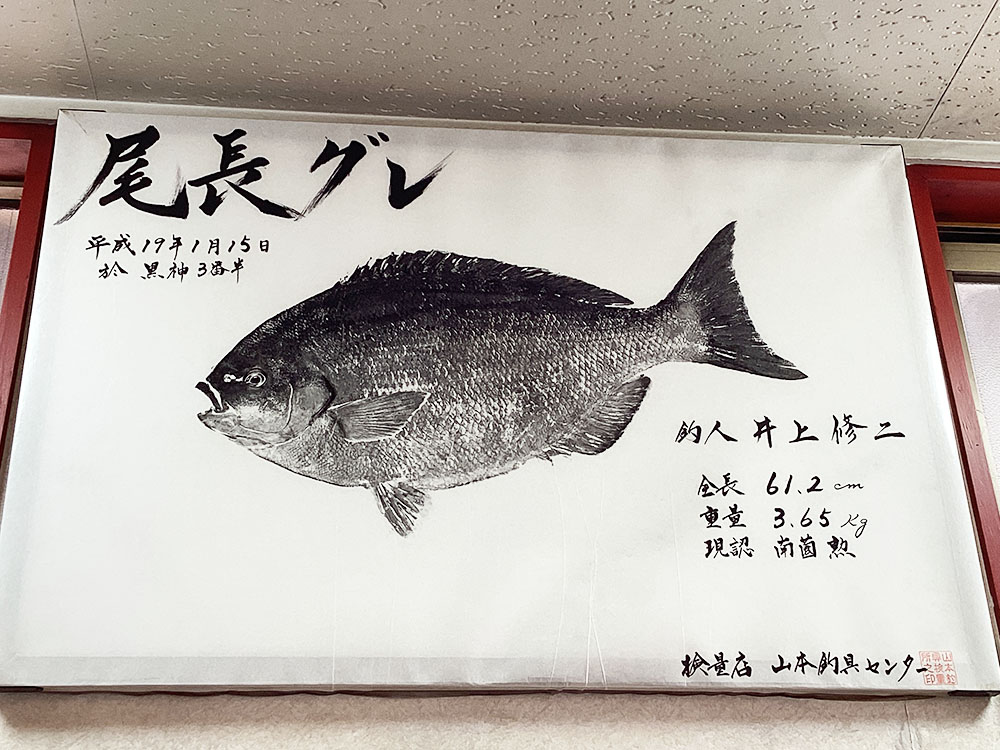 尾長グレ
平成19年1月15日
於 黒神3番半
釣人 井上修二
全長 61.2cm
重量 3.65Kg
現認 南薗勲
検量店 山本釣具センター